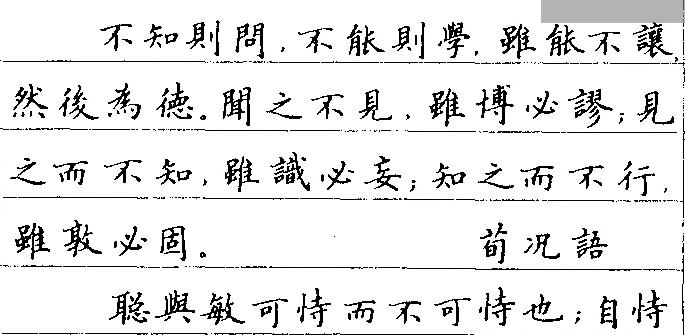 不知則問,不能則學,雖能不讓,
然後為德。聞之不見,雖博必謬;見
之而不知,雖識必妄;知之而不行,
雖敦必固。 荀况語
聰與敏可恃而不可恃也;自恃